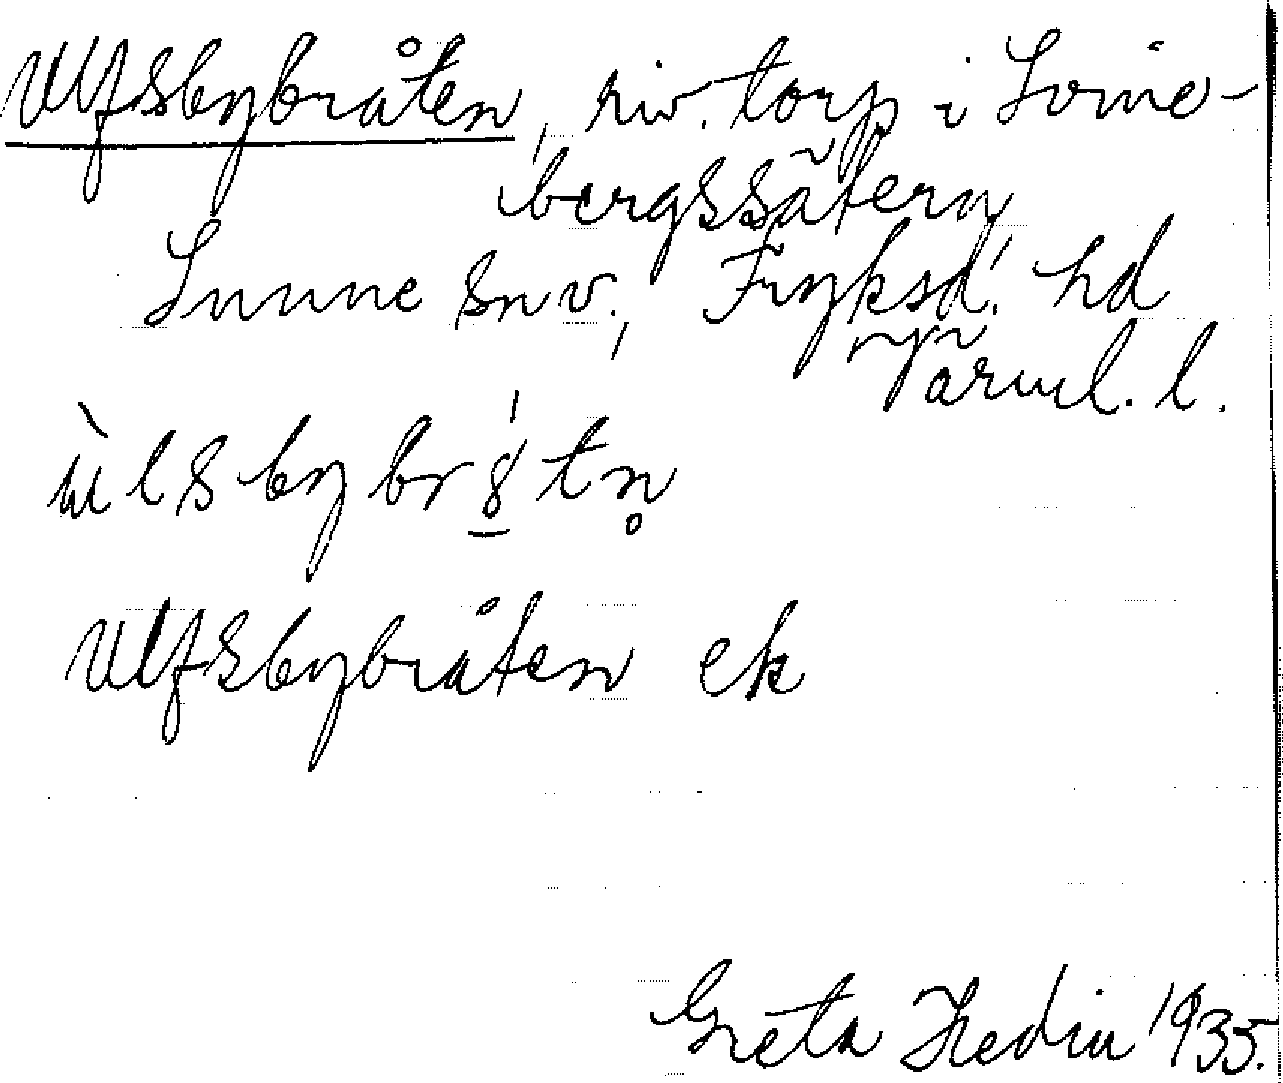 Ulfsbybråten, riv. torp i Svine-
bergssätern,
Sunne snv., Fryksd. hd
Värml. l.
Ulfsbybråten ek
Greta Hedin 1935.